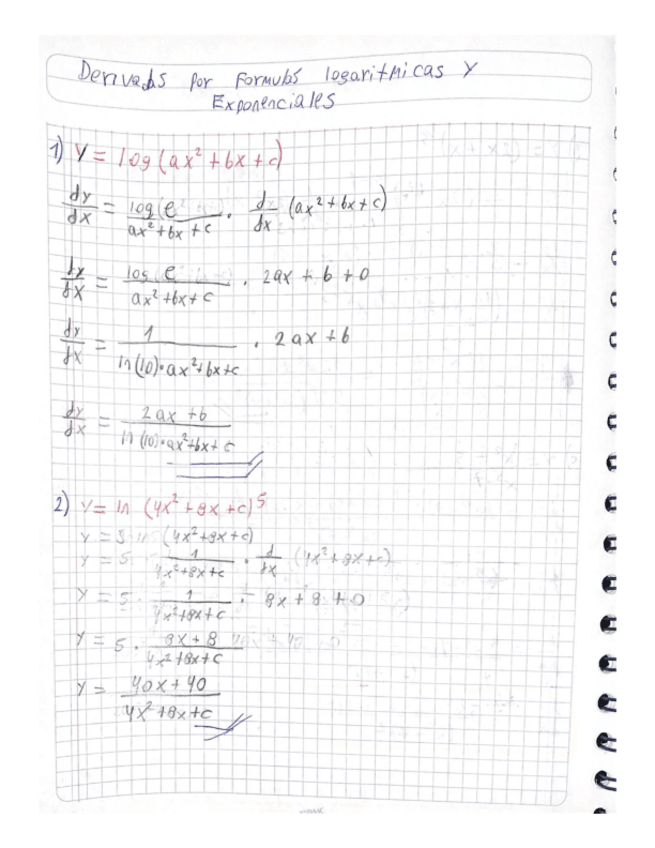 Derivadas por Formulas logaritmicas y
Exponenciales
1) y = log (ax² + bx + c)
dy/dx = log e / ax² + bx + c · d/dx (ax² + bx + c)
dy/dx = log e / ax² + bx + c · 2ax + b + 0
dy/dx = 1 / ln (10) · ax² + bx + c · 2ax + b
dy/dx = 2ax + b / ln (10) · ax² + bx + c
2) y = ln (4x² + 8x + c)⁵
y = 5 ln (4x² + 8x + c)
y = 5 · 1 / 4x² + 8x + c · d/dx (4x² + 8x + c)
y = 5 · 1 / 4x² + 8x + c · 8x + 8 + 0
y = 5 · 8x + 8 / 4x² + 8x + c
y = 40x + 40 / 4x² + 8x + c